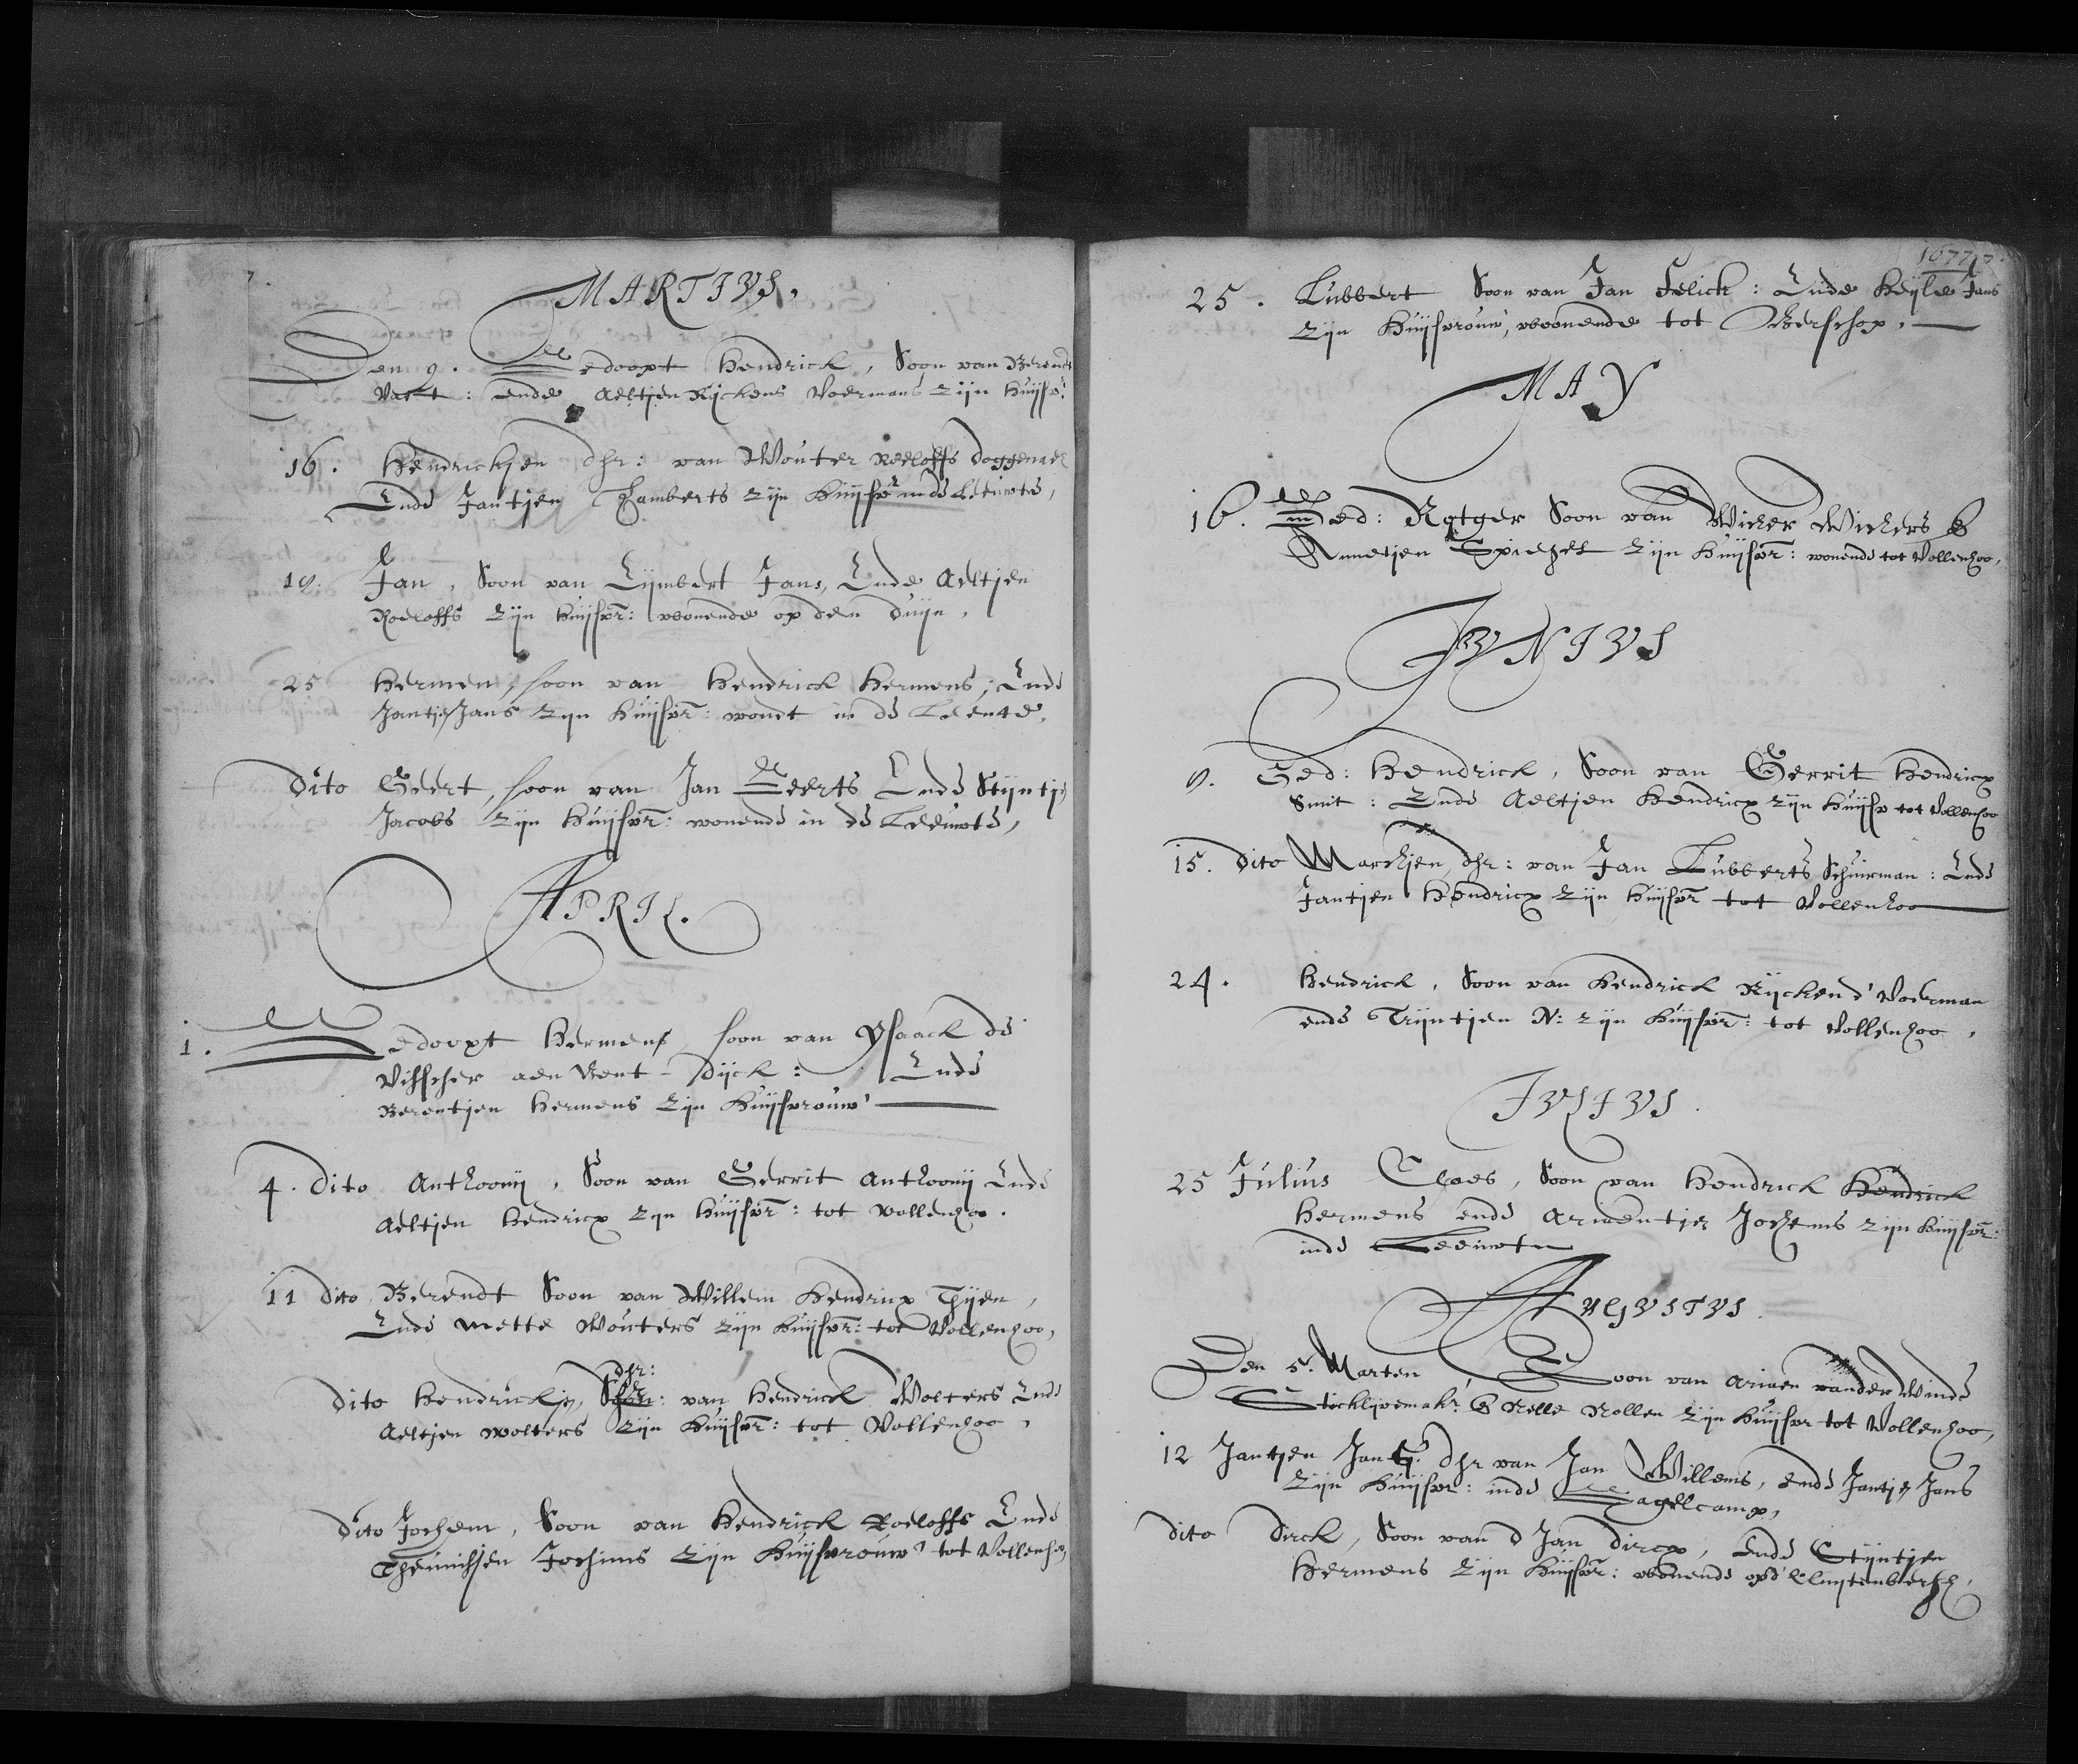 MARTIVS,
Den 9. Gedoopt Hendrick, Soon van Berendt
Vact: ende Aeltjen Rijckens Voermans zijn huijsv:
16. Hendrickjen dhr: van Wouter Roeloffs
Ende Jantjen Lamberts zijn huijsvr in de Leeuwte,
19. Jan, Soon van Lijmbert Jans, Ende Aeltjen
Roeloffs zijn huijsvr: wonende op den duijn,
25 Hermen, soon van Hendrick Hermens, Ende
Jantje Jans zijn huijsvr: wont in de Leeute,
Dito Geert, soon van Jan Geerts Ende Stijntje
Jacobs zijn huijsvr: wonende in de Leeuwte,
APRIL.
1. Gedoopt Hermen, soon van Ysaack de
Visscher aen Vent-Dijck: Ende
Berentjen Hermens zijn huijsvrouw
4. Dito Anthoonij, Soon van Gerrit Anthoonij Ende
Aeltjen Hendricx zijn huijsvr: tot vollenhoo.
11 Dito Berendt Soon van Willem Hendricx Thijen,
Ende Mette Wouters zijn huijsvr: tot Vollenhoo,
dhr:
Dito Hendrickje, Soon: van Hendrick Wolters Ende
Aeltjen wolters zijn huijsvr: tot Vollenhoo,
Dito Jochem, Soon van Hendrick Roeloffs Ende
Theunisjen Jochims zijn huijsvrouw tot Vollenho,
1677
25. Lubbert Soon van Jan Felick: Ende Heijle Jans
zijn huijsvrouw, wonende tot Berschop,
MAY
16. Ged: Rotger Soon van Wicher Wichers &
Annetjen Spiegel zijn huijsvr: wonende tot Vollenhoo,
JVNIVS
9. Ged: Hendrick, Soon van Gerrit Hendricx
Smit: Ende Aeltjen Hendricx zijn huijsv tot Vollenhoo
15. Dito Marchjen dhr: van Jan Lubberts Schuirman: Ende
Jantjen Hendricx zijn huijsvr tot Vollenhoo
24. Hendrick, Soon van Hendrick Rijcken d' Voerman
ende Trijntjen N: zijn huijsvr: tot Vollenhoo,
JVLIVS.
25 Julius Claes, Soon van Hendrick Hendrick
Hermens ende Arentjen Jochems zijn huijsvr:
inde Leeuwte
AVGVSTVS.
Den 5. Marten, Soon van Ariaen vander Winde
Stecklijvemakr & Nelle Nollen zijn huijsvr tot Vollenhoo,
12 Jantjen Jantj. dhr van Jan Willems, ende Jantje Jans
zijn huijsvr: inde Hagelcamp,
Dito Dirck, Soon van d Jan Dircx, Ende Stijntjen
Hermens zijn huijsvr: wonende op d' Cluijtenbergh,